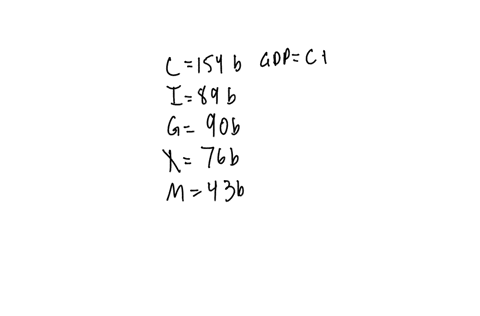 C = 154 b GDP = C +
I = 89 b
G = 90b
X = 76b
M = 43b